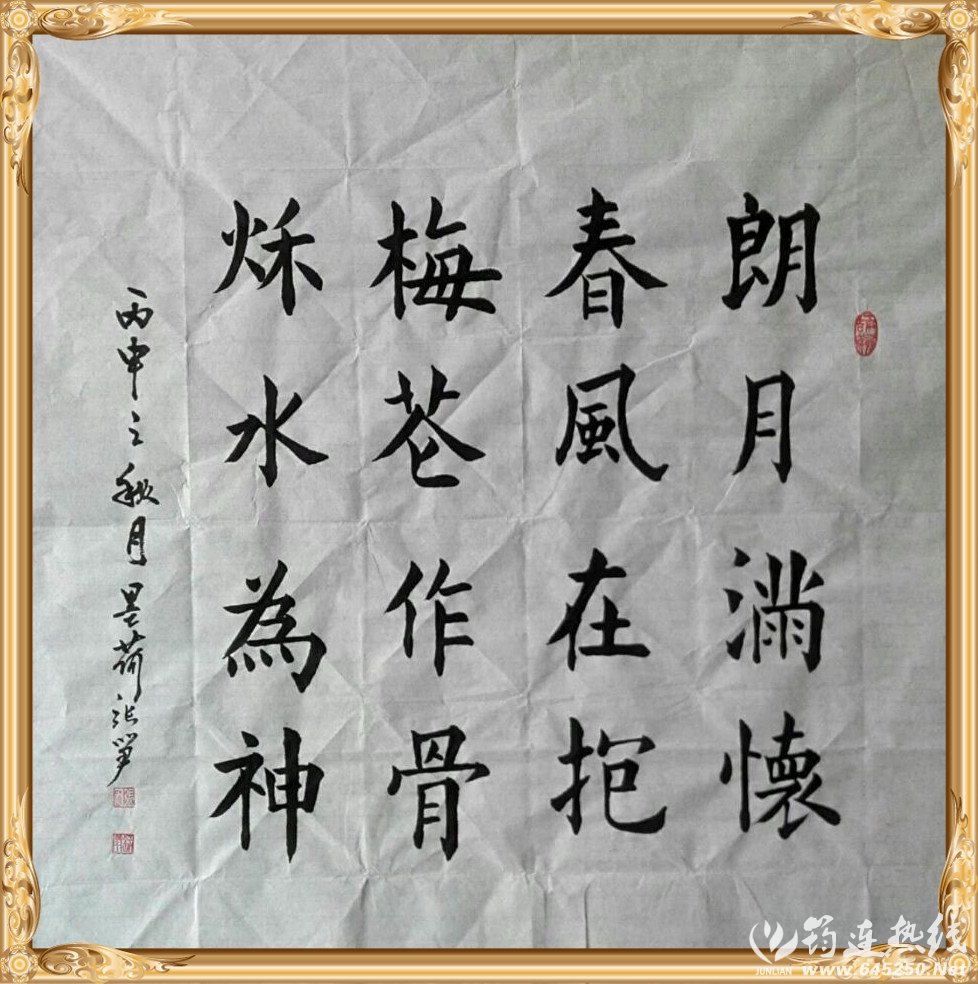 朗月滿懷
春風在抱
梅花作骨
秌水為神
丙申之秋月墨荷張
筠连热线
JUNLIAN www.645250.Net